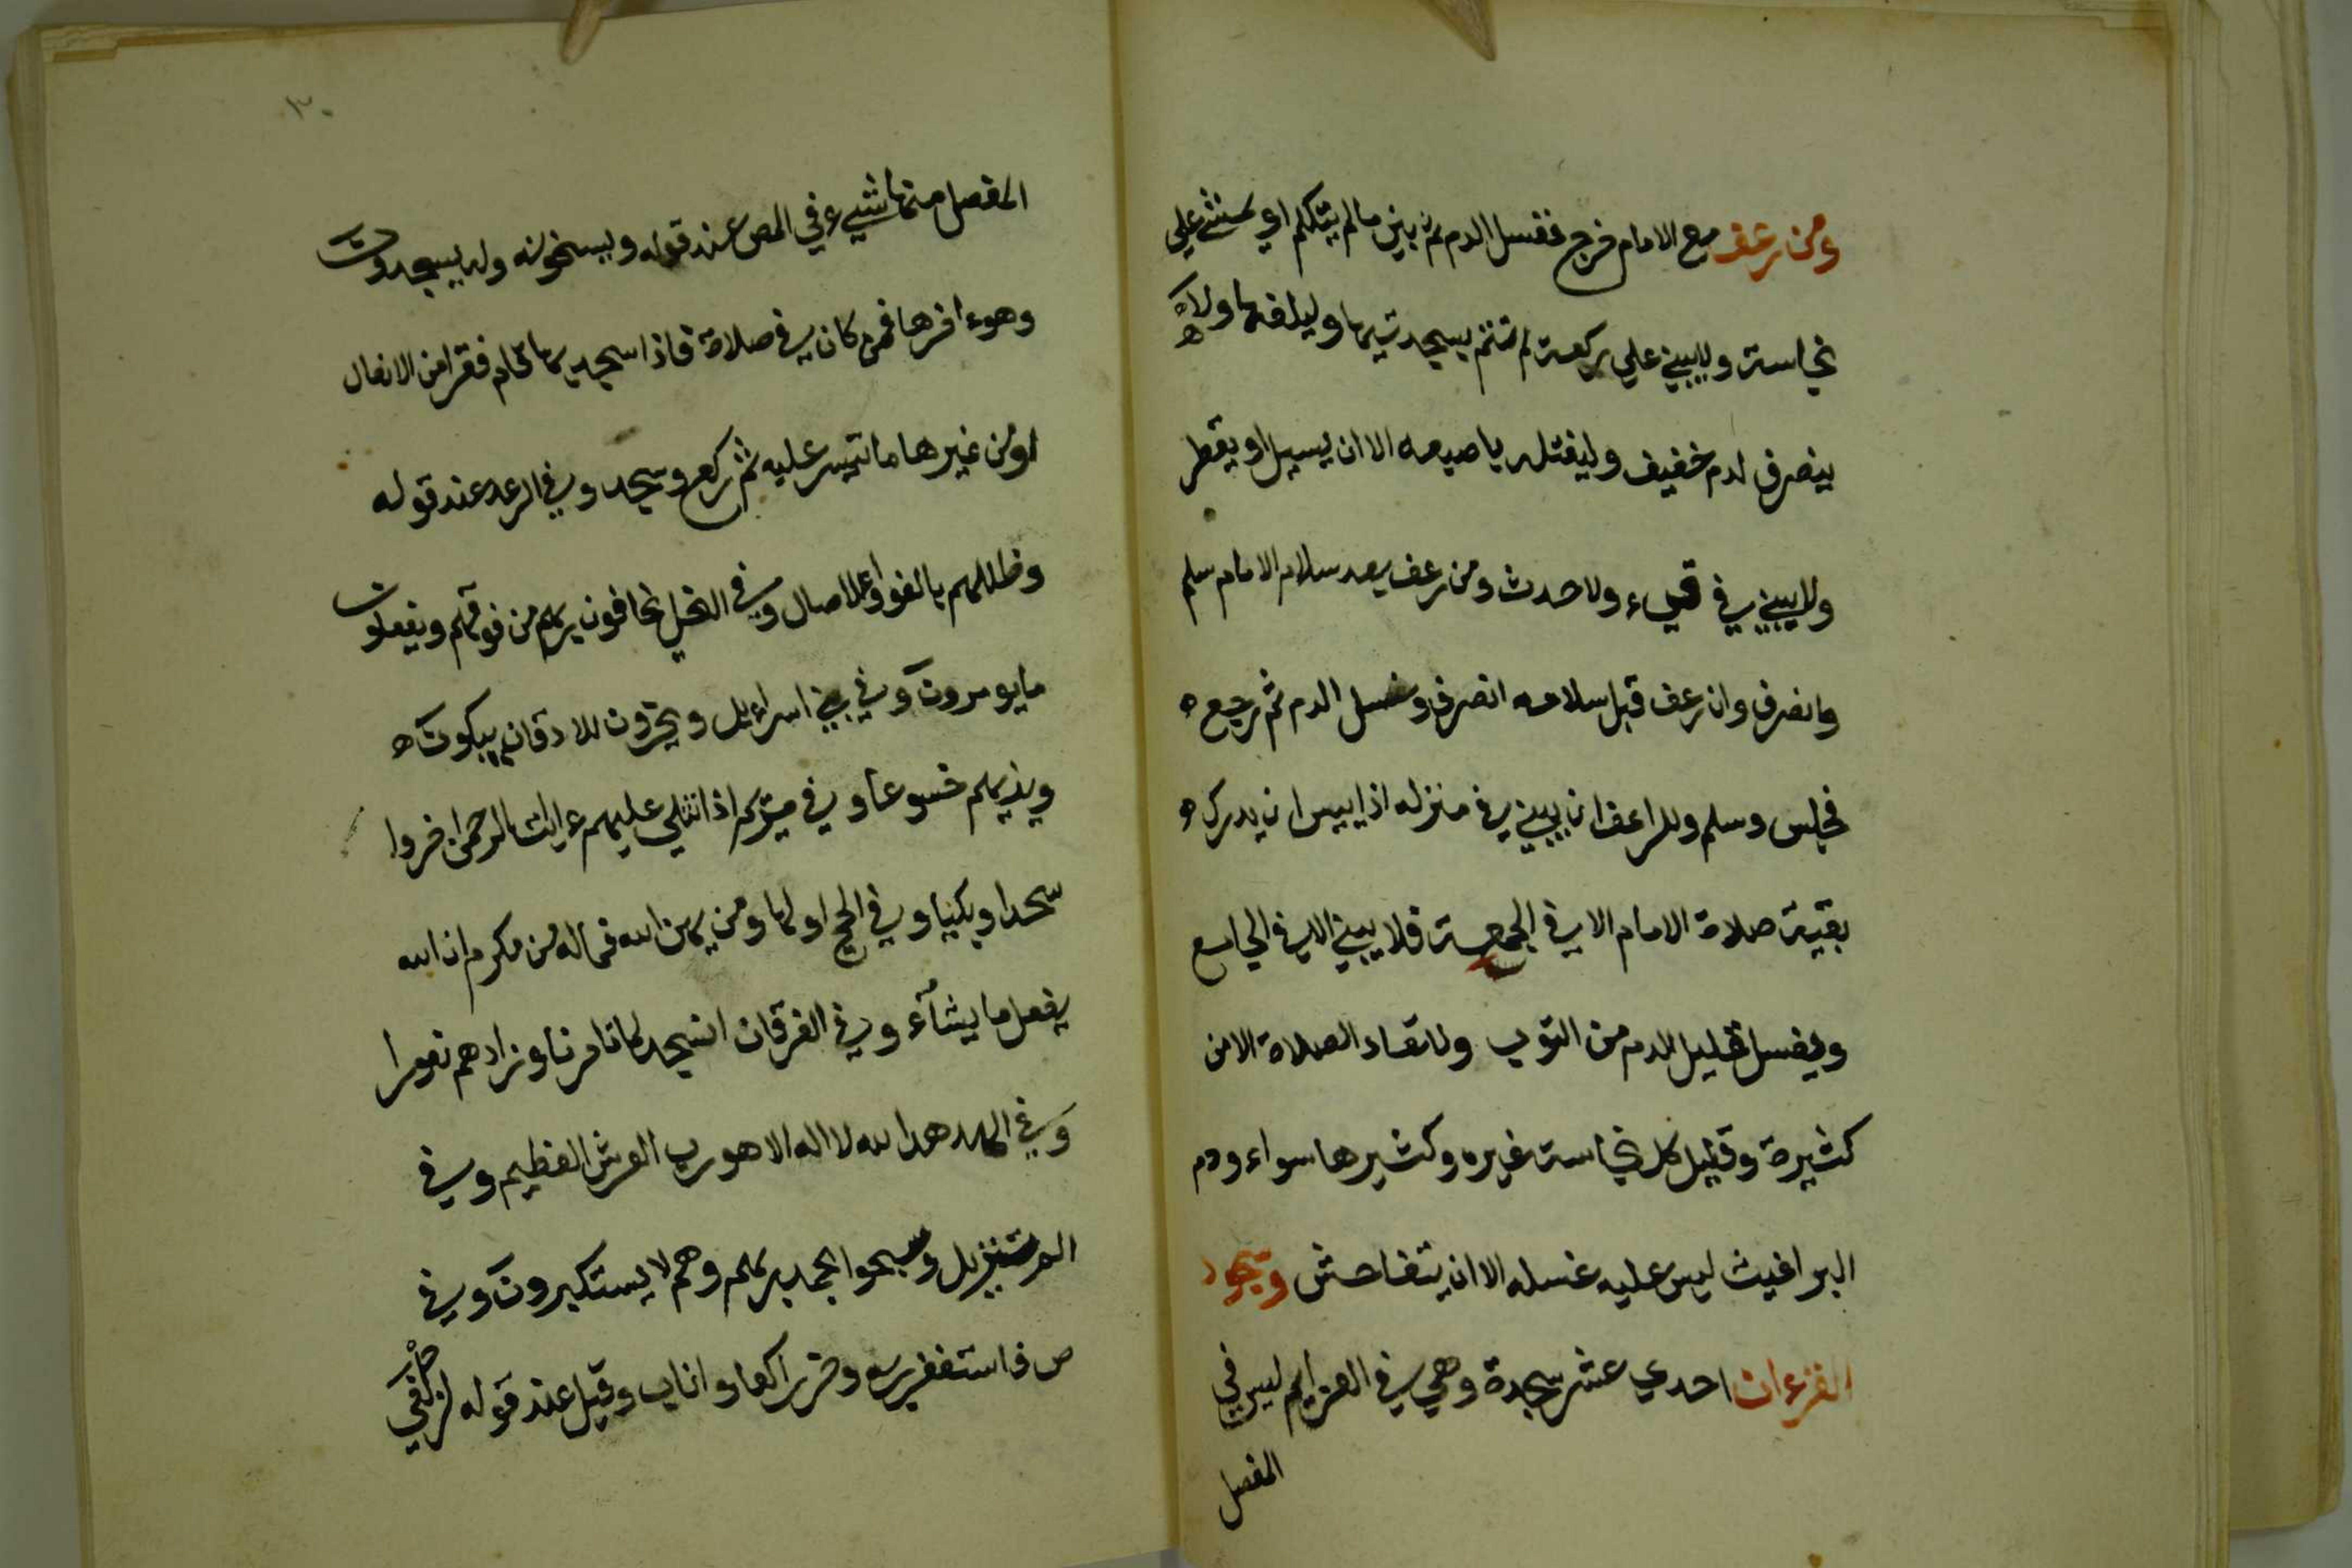 ومن رعف مع الامام خرج فغسل الدم ثم بني مالم يتكلم او يمشي علي
نجاسة ولا يبني علي ركعة لم تتم بسجدتيها وليلغها ولا
ينصرف لدم خفيف وليفتله باصبعه الا ان يسيل او يقطر
ولا يبني في قيء ولا حدث ومن رعف بعد سلام الامام سلم
وانصرف وان رعف قبل سلامه انصرف وغسل الدم ثم رجع
فجلس وسلم وللراعف ان يبني في منزله اذا ييس ان يدرك
بقية صلاة الامام الا في الجمعة فلا يبني الا في الجامع
ويغسل قليل الدم من الثوب ولا تعاد الصلاة الا من
كثيرة وقليل كل نجاسة غيره وكثيرها سواء ودم
البراغيث ليس عليه غسله الا ان يتفاحش وسجود
القرءان احدي عشر سجدة وهي في العزايم ليس في
المفصل
٣٠
المفصل منها شيء في المص عند قوله ويسبحونه وله يسجدون
وهوء اخرها فمن كان في صلاة فاذا سجدها قام فقرا من الانفال
اومن غيرها ما تيسر عليه ثم ركع وسجد وفي الرعد عند قوله
وظللهم بالغدو والاصال وفي النحل يخافون ربهم من فوقهم ويفعلون
مايومرون وفي بني اسراءيل ويخرون للاذقان يبكون
ويزيدهم خشوعا وفي مريم اذا تتلي عليهم ءايات الرحمن خروا
سجدا وبكيا وفي الحج اولها ومن يهن الله فماله من مكرم ان الله
يفعل ما يشآء وفي الفرقان انسجد لما تامرنا وزادهم نفورا
وفي الهدهد الله لا اله الا هو رب العرش العظيم وفي
الم تنزيل وسبحوا بحمد ربهم وهم لا يستكبرون وفي
ص فاستغفر ربه وخر راكعا واناب وقيل عند قوله لزلفي